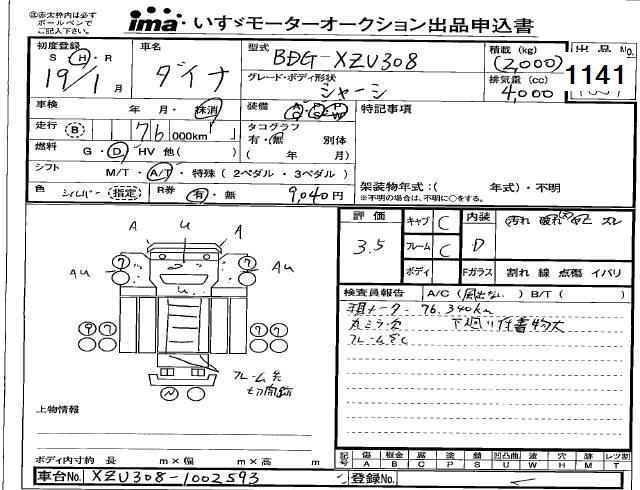 注赤太枠内は必ず
ボールペンで
ご記入下さい。
ima いすゞモーターオークション出品申込書
初度登録 S・H・R 19/1月
車名 ダイナ
型式 BDG-XZU308
グレード・ボディ形状 シャーシ
積載 (kg) (2,000)
排気量 (cc) 4,000
出品No.
1141
車検 年 月・抹消
装備 A P
走行 B 176 000km
タコグラフ 有・無 別体 ( 年 月)
特記事項
燃料 G・D・HV 他( )
シフト M/T・A/T・特殊(2ペダル・3ペダル)
色 シルバー 指定
R券 有・無 9,040円
架装物年式:( 年式)・不明
※不明の場合は、不明に○をする。
評価 3.5
キャブ C
フレーム C
ボディ
内装 D 汚れ 破れ スレ
Fガラス 割れ 線 点傷 イバリ
検査員報告 A/C(風出ない) B/T( )
現メーター 76,340km
下廻り
A U A
AU AU
U
7 7
7 7
N
フレーム先
切開跡
上物情報
ボディ内寸約 長 m×幅 m×高 m
記号 傷A 板金B 腐C 塗P 錆S 凹凸曲U 波W 穴H 跡M レツ割T
車台No. XZU308-1002593
登録No.